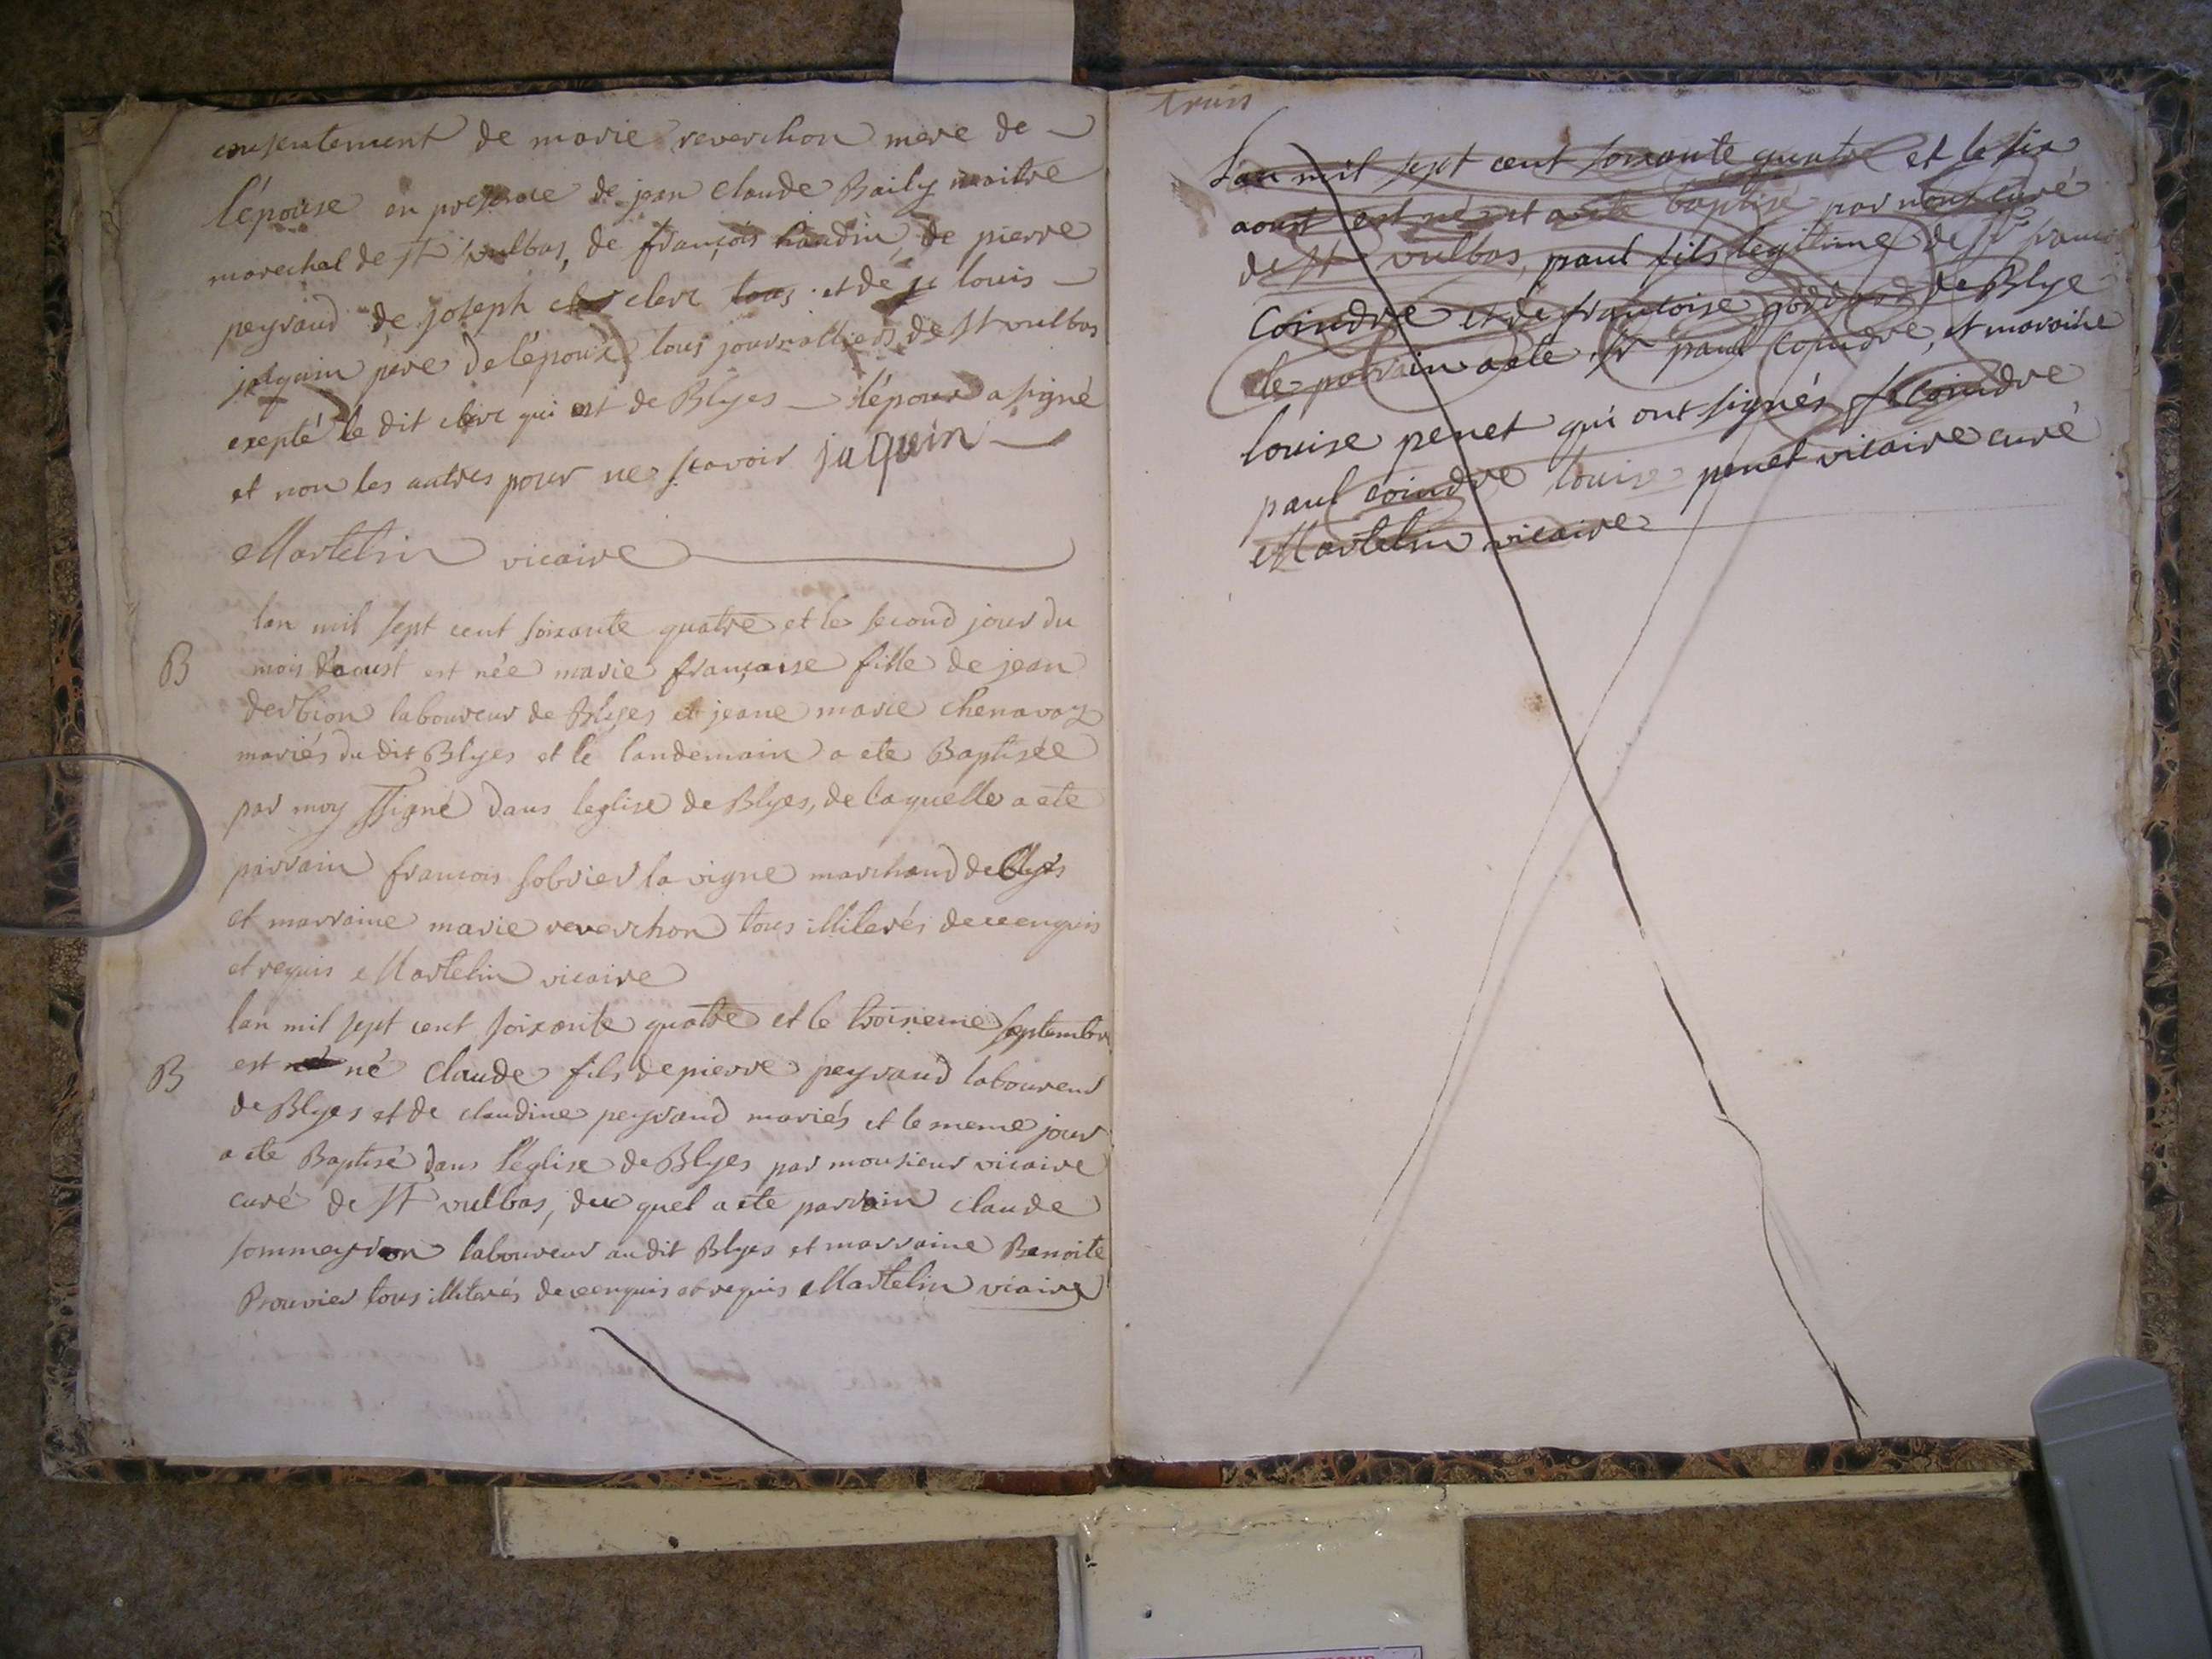 consentement de marie reverchon mere de
l'épouse en presence de jean claude Baily maitre
marechal de St vulbas, de françois de pierre
peyraud de joseph clerc tous et de louis
jaquin père de l'époux tous journalliers de St vulbas
exepté le dit clerc qui est de Blyes l'époux a signé
et non les autres pour ne scavoir jaquin
Martelin vicaire
lan mil sept cent soixante quatre et le second jour du
B mois d'aoust est née marie françoise fille de jean
derbion laboureur de Blyes et jeane marie chenavaz
mariés du dit Blyes et le landemain a ete Baptisée
par moy ssigné dans leglise de Blyes, de laquelle a ete
parrain francois sobrier lavigne marchand de Blyes
et marraine marie reverchon tous illiterés de ce enquis
et requis Martelin vicaire
lan mil sept cent soixante quatre et le troisieme septembre
B est né claude fils de pierre peyraud laboureur
de Blyes et de claudine peyraud mariés et le meme jour
a ete Baptisé dans l'église de Blyes par monsieur vicaire
curé de St vulbas, du quel a ete parrain claude
sommeyron laboureur au dit Blyes et marraine Benoite
Brouvier tous illiterés de ce enquis et requis Martelin vicaire
trois
L'an mil sept cent soixante quatre et le six
aoust est né et a ete baptisé par nous curé
de St vulbas, paul fils legitime de Sr francois
Coindre et de francoise de Blye
le parrain a ete Sr paul Coindre, et maraine
louise penet qui ont signés f Coindre
paul coindre louise penet vicaire curé
Martelin vicaire